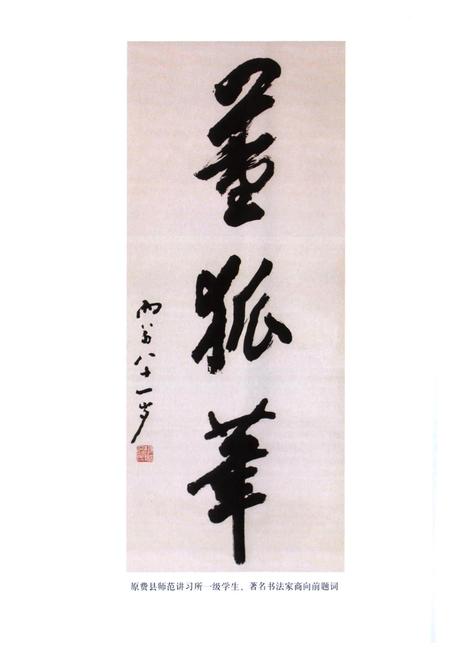 董狐笔
雨翁八十一岁
原费县师范讲习所一级学生、著名书法家商向前题词